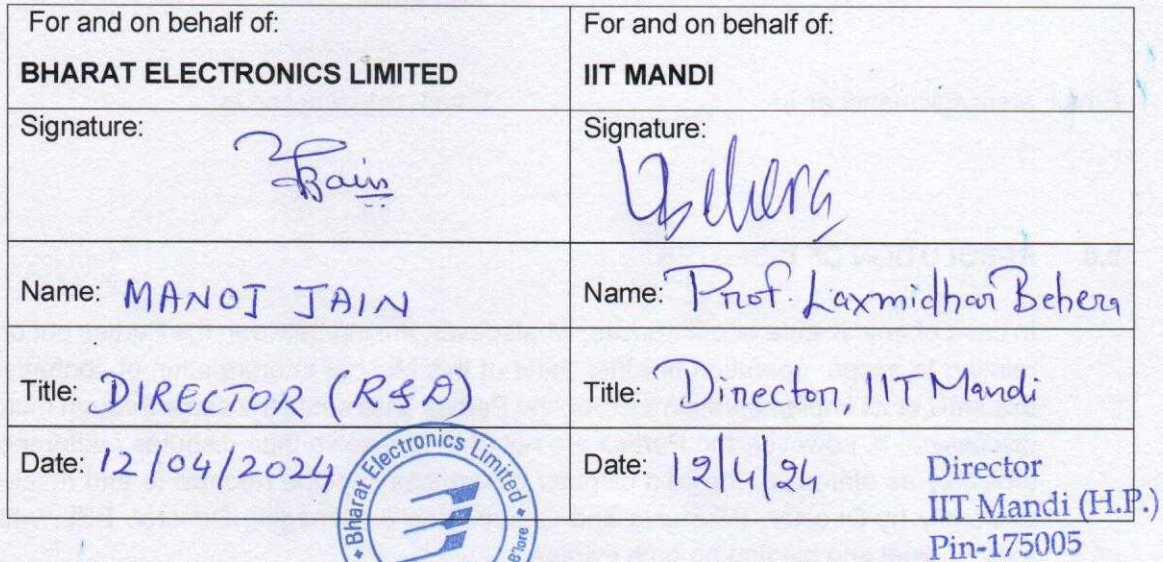 For and on behalf of:
BHARAT ELECTRONICS LIMITED
For and on behalf of:
IIT MANDI
Signature:
Jain
Signature:
Behera
Name: MANOJ JAIN
Name: Prof. Laxmidhar Behera
Title: DIRECTOR (R&D)
Title: Director, IIT Mandi
Date: 12/04/2024
Date: 12/4/24
Bharat Electronics Limited
Director
IIT Mandi (H.P.)
Pin-175005